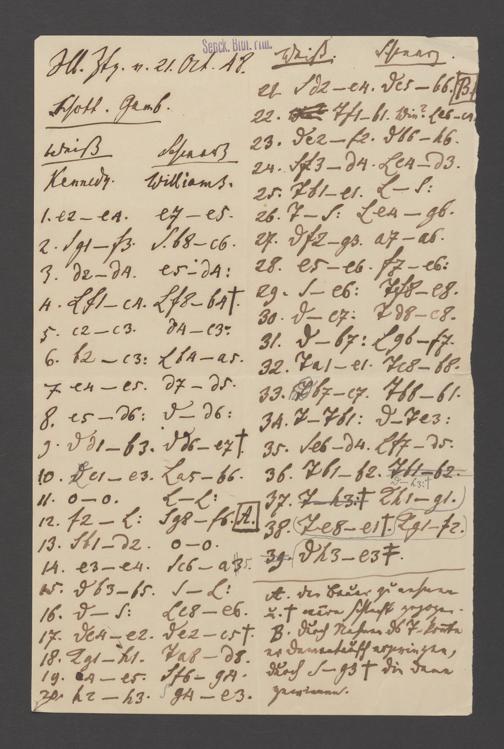 Ill. Ztg. v. 21. Oct. 48.
Senck. Bibl. Ffm.
Schott. Gamb.
Weiß Schwarz
Kennedy. Williams.
1. e2 – e4. e7 – e5.
2. Sg1 – f3. S.b8 – c6.
3. d2 – d4. e5 – d4:
4. Lf1 – c4. Lf8 – b4†.
5. c2 – c3. d4 – c3:
6. b2 – c3: Lb4 – a5.
7. e4 – e5. d7 – d5.
8. e5 – d6: D – d6:
9. Dd1 – b3. Dd6 – e7†
10. Lc1 – e3. La5 – b6.
11. 0 – 0. L – L:
12. f2 – L: Sg8 – f6. A.
13. Sb1 – d2. 0 – 0.
14. e3 – e4. Sc6 – a5.
15. Db3 – b5. S – L:
16. D – S: Lc8 – e6.
17. Dc4 – e2. De7 – c5†
18. Kg1 – h1. Ta8 – d8.
19. e4 – e5. Sf6 – g4.
20. h2 – h3. Sg4 – e3.
Weiß. Schwarz.
21. Sd2 – e4. Dc5 – b6. B.
22. Tf1 – b1. Le6 – c4
23. De2 – f2. Db6 – h6.
24. Sf3 – d4. Lc4 – d3.
25. Tb1 – e1. L – S:
26. T – S: Le4 – g6.
27. Df2 – g3. a7 – a6.
28. e5 – e6. f7 – e6:
29. S – e6: Tf8 – e8.
30. D – c7: Td8 – c8.
31. D – b7: Lg6 – f7.
32. Ta1 – e1. Tc8 – b8.
33. Db7 – c7. Tb8 – b1.
34. T – Tb1: D – Te3:
35. Se6 – d4. Lf7 – d5.
36. Tb1 – b2. Tf1 – b2.
D – h3:†
37. T – h3:† Kh1 – g1.
38. (Te8 – e1†. Kg1 – f2.)
39. Dh3 – e3‡.
A. der Bauer zu nehmen
u. † wäre schlecht gezogen.
B. Durch Nehmen des T. konnte
er
durch S – g3† die Dame
gewinnen.